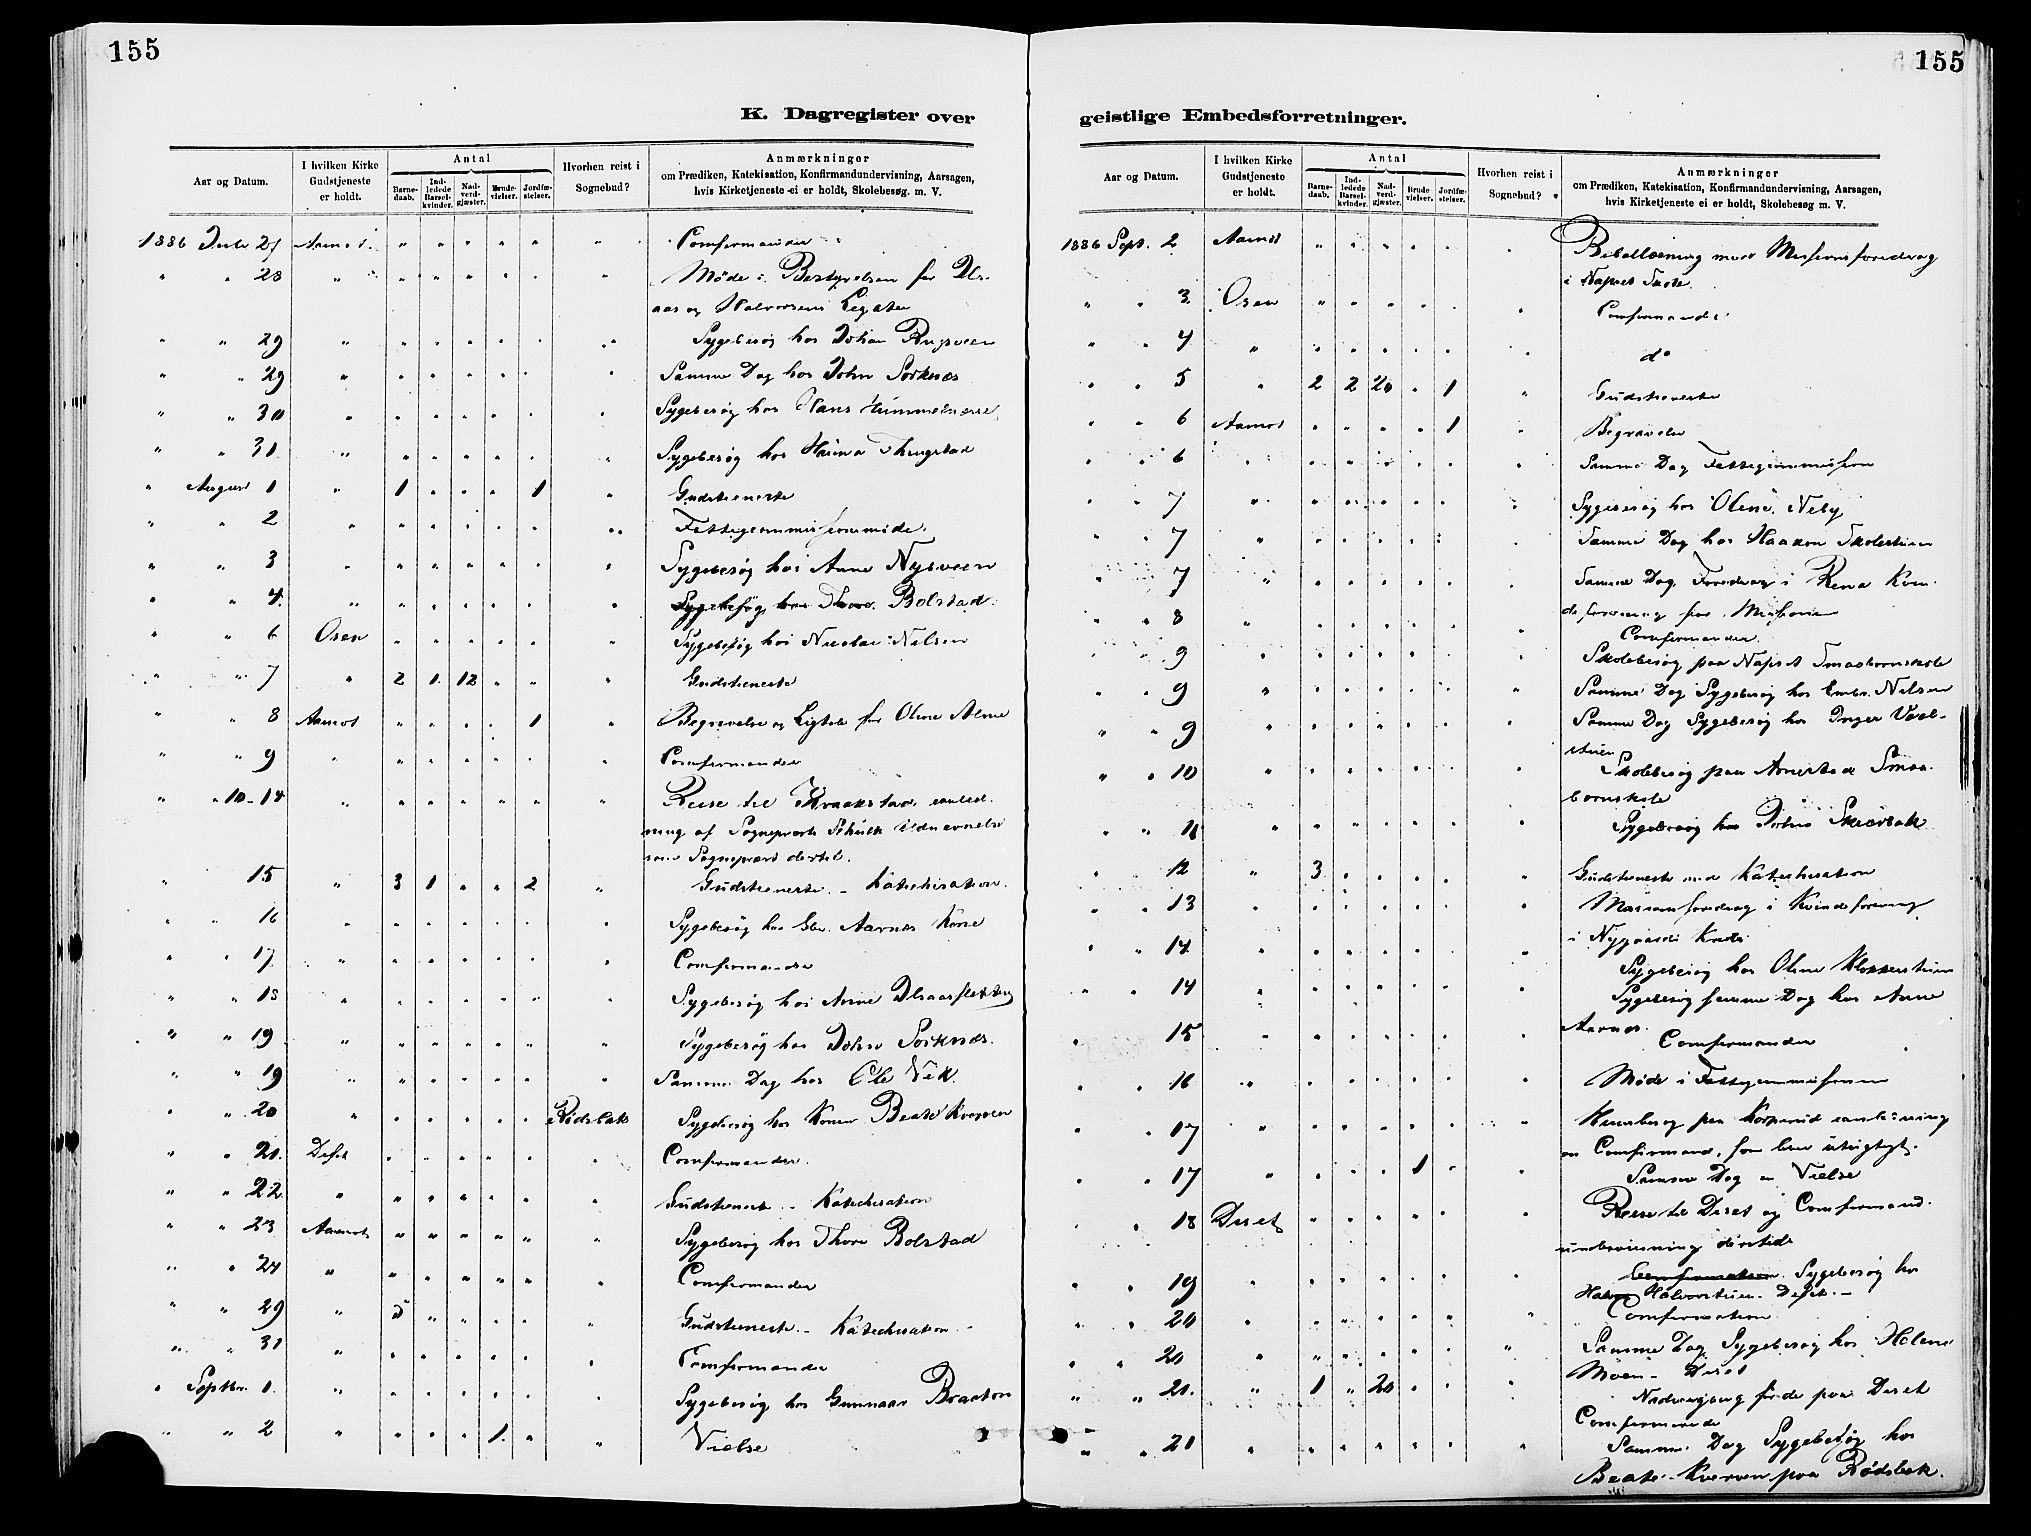 155
K. Dagregister over
Aar og Datum.
I hvilken Kirke Gudstjeneste er holdt.
Antal
Barne-daab.
Ind-ledede Barsel-kvinder.
Nad-verd-gjæster.
Brude-vielser.
Jordfæ-stelser.
Hvorhen reist i Sognebud?
Anmærkninger
om Prædiken, Katekisation, Konfirmandundervisning, Aarsagen,
hvis Kirketjeneste ei er holdt, Skolebesøg. m. V.
1886 Juli 27 Aamot " " " " " " Comfirmander
" " 28 " " " " " " " Møde i Bestyrelsen for Ul-
aas og Halvorsens Legater
" " 29 " " " " " " " Sygebesøg hos Johan
" " 29 " " " " " " " Samme Dag hos John Sorknes
" " 30 " " " " " " " Sygebesøg hos Hans
" " 31 " " " " " " " Sygebesøg hos
" August 1 " 1 " " " 1 " Gudstieneste
" " 2 " " " " " " " Fattigcommissionsmøde
" " 3 " " " " " " " Sygebesøg hos Anne Nysveen
" " 4 " " " " " " " Sygebesøg hos Thore Bolstad
" " 6 Osen " " " " " " Sygebesøg hos Nielsen
" " 7 " 2 1 12 " " " Gudstieneste
" " 8 Aamot " " " " 1 " Begravelse og Ligtale for Oline
" " 9 " " " " " " " Comfirmander
" " 10-14 " " " " " " " Reise til Kraakstad, anled-
ning af Sogneprest Udnævnelse
som Sogneprest dertil.
" " 15 " 3 1 " " 2 " Gudstieneste. - Katechisation.
" " 16 " " " " " " " Sygebesøg hos Aarnes Kone
" " 17 " " " " " " " Comfirmander
" " 18 " " " " " " " Sygebesøg hos Anne Ulsaasfletten
" " 19 " " " " " " " Sygebesøg hos John Sorknes.
" " 19 " " " " " " " Samme Dag hos Ole Vik.
" " 20 " " " " " " Rødsbak Sygebesøg hos Konen Beate Kverven
" " 21. Deset " " " " " " Comfirmander.
" " 22 " " " " " " " Gudstieneste - Katechisation
" " 23 Aamot " " " " " " Sygebesøg hos Thore Bolstad
" " 24 " " " " " " " Comfirmander
" " 29 " 5 " " " " " Gudstieneste - Katechisation -
" " 31 " " " " " " " Comfirmander
" Septbr. 1. " " " " " " " Sygebesøg hos Gunnar Braaten
" " 2 " " " " 1. " " Vielse
155
geistlige Embedsforretninger.
Aar og Datum.
I hvilken Kirke Gudstjeneste er holdt.
Antal
Barne-daab.
Ind-ledede Barsel-kvinder.
Nad-verd-gjæster.
Brude vielser.
Jordfæ-stelser.
Hvorhen reist i Sognebud?
Anmærkninger
om Prædiken, Katekisation, Konfirmandundervisning, Aarsagen,
hvis Kirketjeneste ei er holdt, Skolebesøg m. V.
1886 Sept. 2 Aamot " " " " " " Bibellæsning med Missionsforedrag
i Napset Skole.
" " 3. Osen " " " " " " Comfirmander
" " 4 " " " " " " " do
" " 5 " 2 2 20 " 1 " Gudstieneste
" " 6 Aamot " " " " 1 " Begravelse
" " 6 " " " " " " " Samme Dag Fattigcommission
" " 7 " " " " " " " Sygebesøg hos Oline Neby
" " 7 " " " " " " " Samme Dag hos Haakon
" " 7 " " " " " " " Samme Dag Foredrag i Rena Kvin-
deforening for Missionen
" " 8 " " " " " " " Comfirmander.
" " 9 " " " " " " " Skolebesøg paa Napset Smaabornskole
" " 9 " " " " " " " Samme Dag Sygebesøg hos Embr. Nilsen
" " 9 " " " " " " " Samme Dag Sygebesøg hos Inger
stuen
" " 10 " " " " " " " Skolebesøg paa Arnestad Smaa-
bornskole
" " 11 " " " " " " " Sygebesøg hos Skiærbak
" " 12 " 3 " " " " " Gudstieneste med Katechisation
" " 13 " " " " " " " Missionsforedrag i Kvindeforening
i Nygaards Kreds
" " 14 " " " " " " " Sygebesøg hos Oline Klokkerstuen
" " 14 " " " " " " " Sygebesøg samme Dag hos Anne
Aarnes.
" " 15 " " " " " " " Comfirmander
" " 16 " " " " " " " Møde i Fattigcommissionen
" " 17 " " " " " " " Huusbesøg paa anledning
en Comfirmand, som blev utrygtigt.
" " 17 " " " " 1 " " Samme Dag en Vielse
" " 18 Deset " " " " " " Reise til Deset og Comfirmand-
underviisning dersteds
" " 19 " " " " " " " Comfirmation. Sygebesøg hos
Halvorstuen. Deset. -
" " 20 " " " " " " " Comfirmation
" " 20 " " " " " " " Samme Dag Sygebesøg hos Helene
Moen - Deset
" " 21. " 1 " 20 " " " paa Deset
Comfirmerede
" " 21 " " " " " " " Samme Dag Sygebesøg hos
Beate Kverven paa Rødsbak.